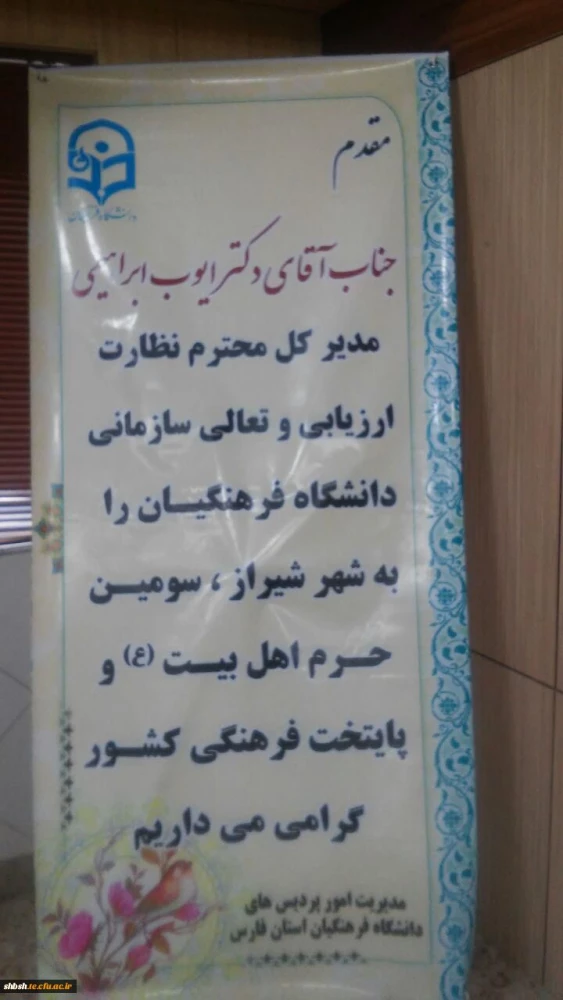 مقدم
دانشگاه فرهنگیان
جناب آقای دکتر ایوب ابراهیمی
مدیر کل محترم نظارت
ارزیابی و تعالی سازمانی
دانشگاه فرهنگیـــان را
به شهر شیراز ، سومیـن
حـــرم اهل بیـــت (ع) و
پایتخت فرهنگی کشـــور
گرامی می داریم
مدیریت امور پردیس های
دانشگاه فرهنگیان استان فارس
shbsh.te.cfu.ac.ir